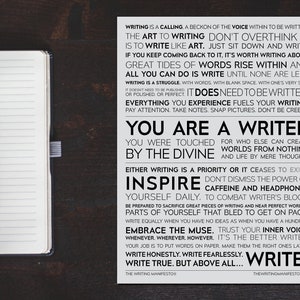 WRITING IS A CALLING. A BECKON OF THE VOICE WITHIN TO BE WRITTEN
THE ART TO WRITING: DON'T OVERTHINK
IS TO WRITE LIKE ART. JUST SIT DOWN AND WRITE
IF YOU KEEP COMING BACK TO IT, IT'S WORTH WRITING ABOUT
GREAT TIDES OF WORDS RISE WITHIN AND
ALL YOU CAN DO IS WRITE UNTIL NONE ARE LEFT
WRITING IS A STRUGGLE. WITH WORDS. WITH BLANK SPACE. WITH ONE'S VERY
IT DOESN'T NEED TO BE PUBLISHED
OR POLISHED. OR PERFECT. IT DOES NEED TO BE WRITTEN
EVERYTHING YOU EXPERIENCE FUELS YOUR WRITING
PAY ATTENTION. TAKE NOTES. SNAP PICTURES. DON'T BE
YOU ARE A WRITER
YOU WERE TOUCHED
BY THE DIVINE
FOR WHO ELSE CAN CREATE
WORLDS FROM NOTHING
AND LIFE BY MERE THOUGHT
EITHER WRITING IS A PRIORITY OR IT CEASES TO EXIST
INSPIRE
DON'T DISMISS THE POWER OF
CAFFEINE AND HEADPHONES
YOURSELF DAILY. TO COMBAT WRITER'S BLOCK
BE PREPARED TO SACRIFICE GREAT PIECES OF WRITING AND NEAR PERFECT WORDS
PARTS OF YOURSELF THAT BLED TO GET ON PAPER
WRITE EQUALLY WHEN YOU HAVE NO IDEAS AS WHEN YOU HAVE A HUNDRED
EMBRACE THE MUSE.
WHENEVER. WHEREVER. HOWEVER.
TRUST YOUR INNER VOICE
IT'S THE BETTER WRITER
YOUR JOB IS TO PUT WORDS ON PAPER. MAKE THEM
WRITE HONESTLY. WRITE FEARLESSLY.
WRITE TRUE. BUT ABOVE ALL... WRITE
THE WRITING MANIFESTO®